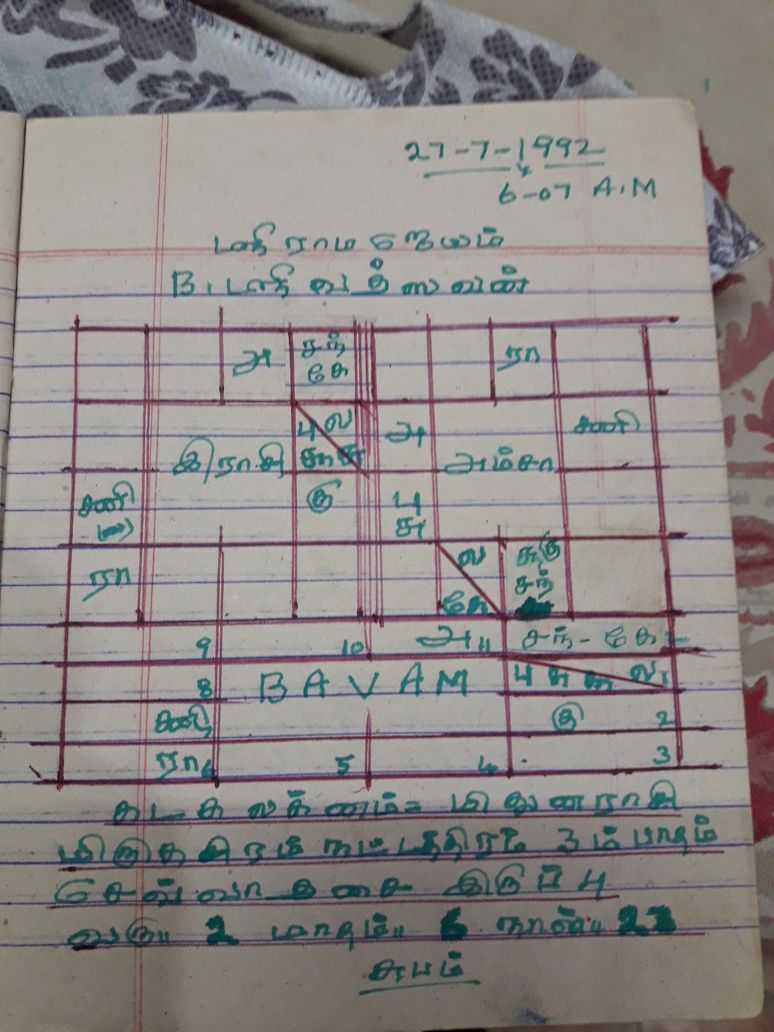 27-7-1992
6-07 A.M
B.
அ சந் ரா
கே
பு ல அ சனி
இராசி அம்சா
சனி கு பு
சு
ரா ல குரு
கே சந்
9 10 அ 11 சந் - கே
8 BAVAM பு ல 1
சனி கு 2
ரா 6 5 4 3
கடக லக்னம் மிதுனராசி
மிருகசிரம் நட்டத்திரம் 3ம் பாதம்
செவ்வாதசை இருப்பு
வரு 2 மாதம் 6 நாள் 23
சுபம்